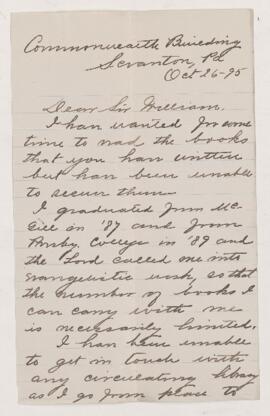 Commonwealth Building
Scranton, Pa
Oct 26-95
Dear Sir William,
I have wanted for some
time to read the books
that you have written
but have been unable
to secure them.
I graduated from Mc-
Gill in '87 and from
Presby. College in '89 and
the Lord called me into
evangelistic work, so that
the number of books I
can carry with me
is necessarily limited.
I have been unable
to get in touch with
any circulating library
as I go from place to